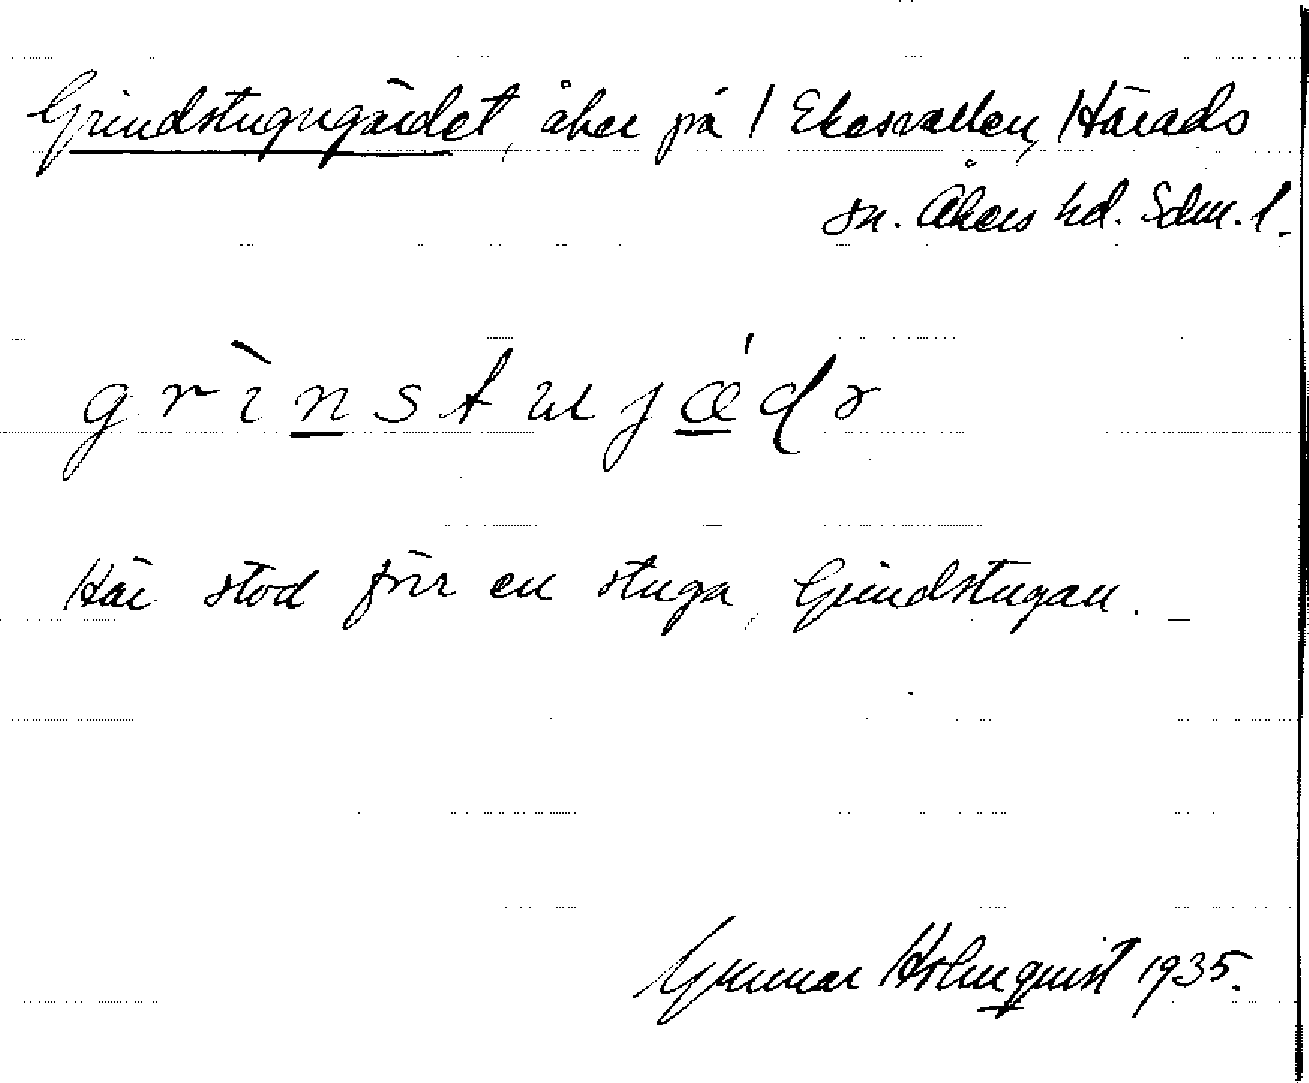 Grindstugugärdet, åker på 1 Ekesvallen, Härads
sn. Åkers hd. Sdm. l.
grìnstujǽdə
Här stod förr en stuga, Grindstugan. —
Gunnar Holmquist 1935.